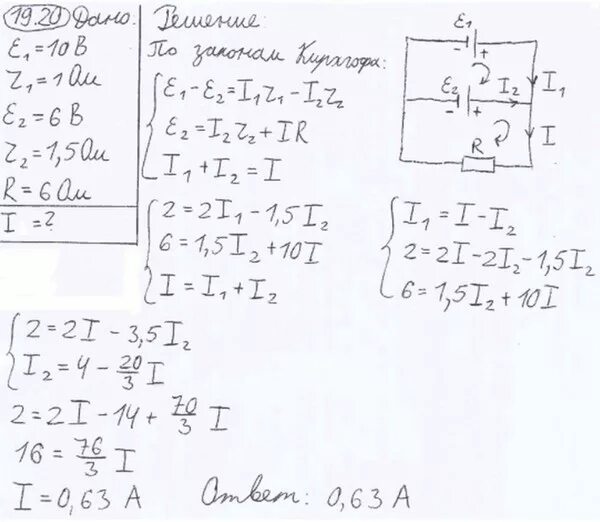 19.20 Дано:
ε₁ = 10 В
r₁ = 1 Ом
ε₂ = 6 В
r₂ = 1,5 Ом
R = 6 Ом
I = ?
Решение:
По законам Кирхгофа:
ε₁ - ε₂ = I₁r₁ - I₂r₂
ε₂ = I₂r₂ + IR
I₁ + I₂ = I
2 = 2I₁ - 1,5I₂
6 = 1,5I₂ + 10I
I = I₁ + I₂
ε₁
- +
ε₂ I₂ I₁
- +
R I
I₁ = I - I₂
2 = 2I - 2I₂ - 1,5I₂
6 = 1,5I₂ + 10I
2 = 2I - 3,5I₂
I₂ = 4 - 20/3 I
2 = 2I - 14 + 70/3 I
16 = 76/3 I
I = 0,63 А
Ответ: 0,63 А